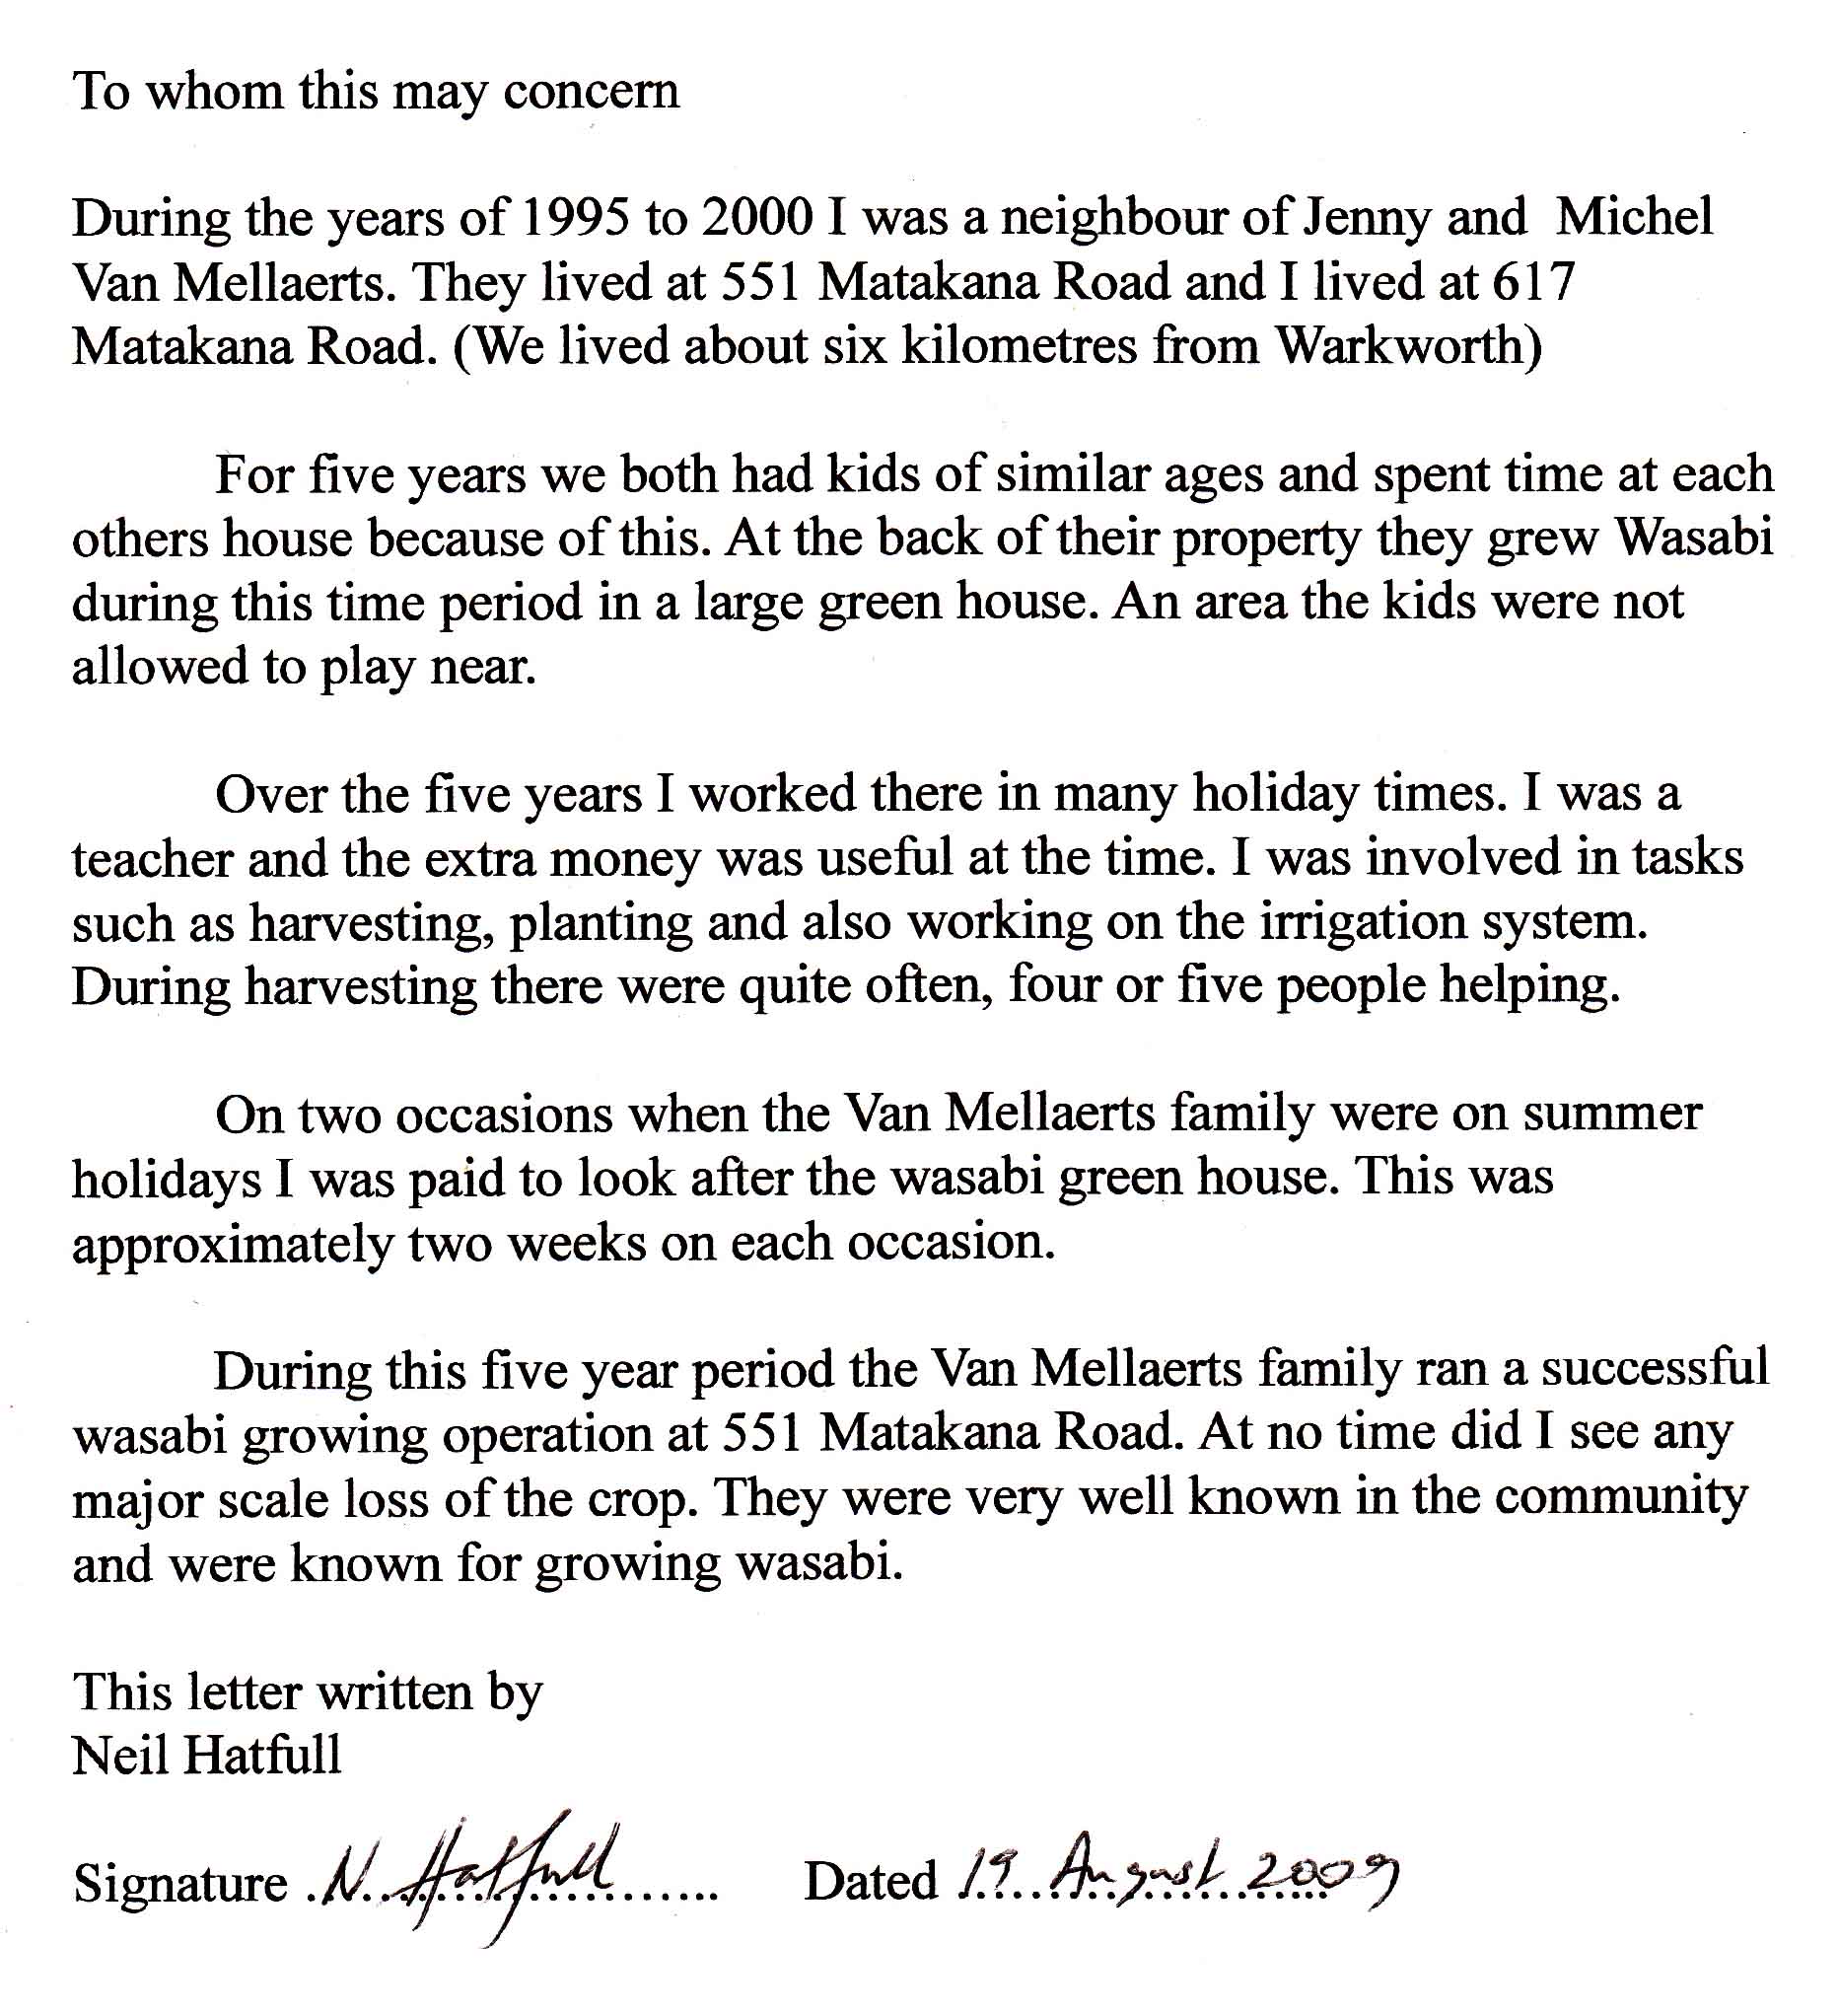 To whom this may concern
During the years of 1995 to 2000 I was a neighbour of Jenny and  Michel
Van Mellaerts. They lived at 551 Matakana Road and I lived at 617
Matakana Road. (We lived about six kilometres from Warkworth)
For five years we both had kids of similar ages and spent time at each
others house because of this. At the back of their property they grew Wasabi
during this time period in a large green house. An area the kids were not
allowed to play near.
Over the five years I worked there in many holiday times. I was a
teacher and the extra money was useful at the time. I was involved in tasks
such as harvesting, planting and also working on the irrigation system.
During harvesting there were quite often, four or five people helping.
On two occasions when the Van Mellaerts family were on summer
holidays I was paid to look after the wasabi green house. This was
approximately two weeks on each occasion.
During this five year period the Van Mellaerts family ran a successful
wasabi growing operation at 551 Matakana Road. At no time did I see any
major scale loss of the crop. They were very well known in the community
and were known for growing wasabi.
This letter written by
Neil Hatfull
Signature N. Hatfull Dated 19 August 2009